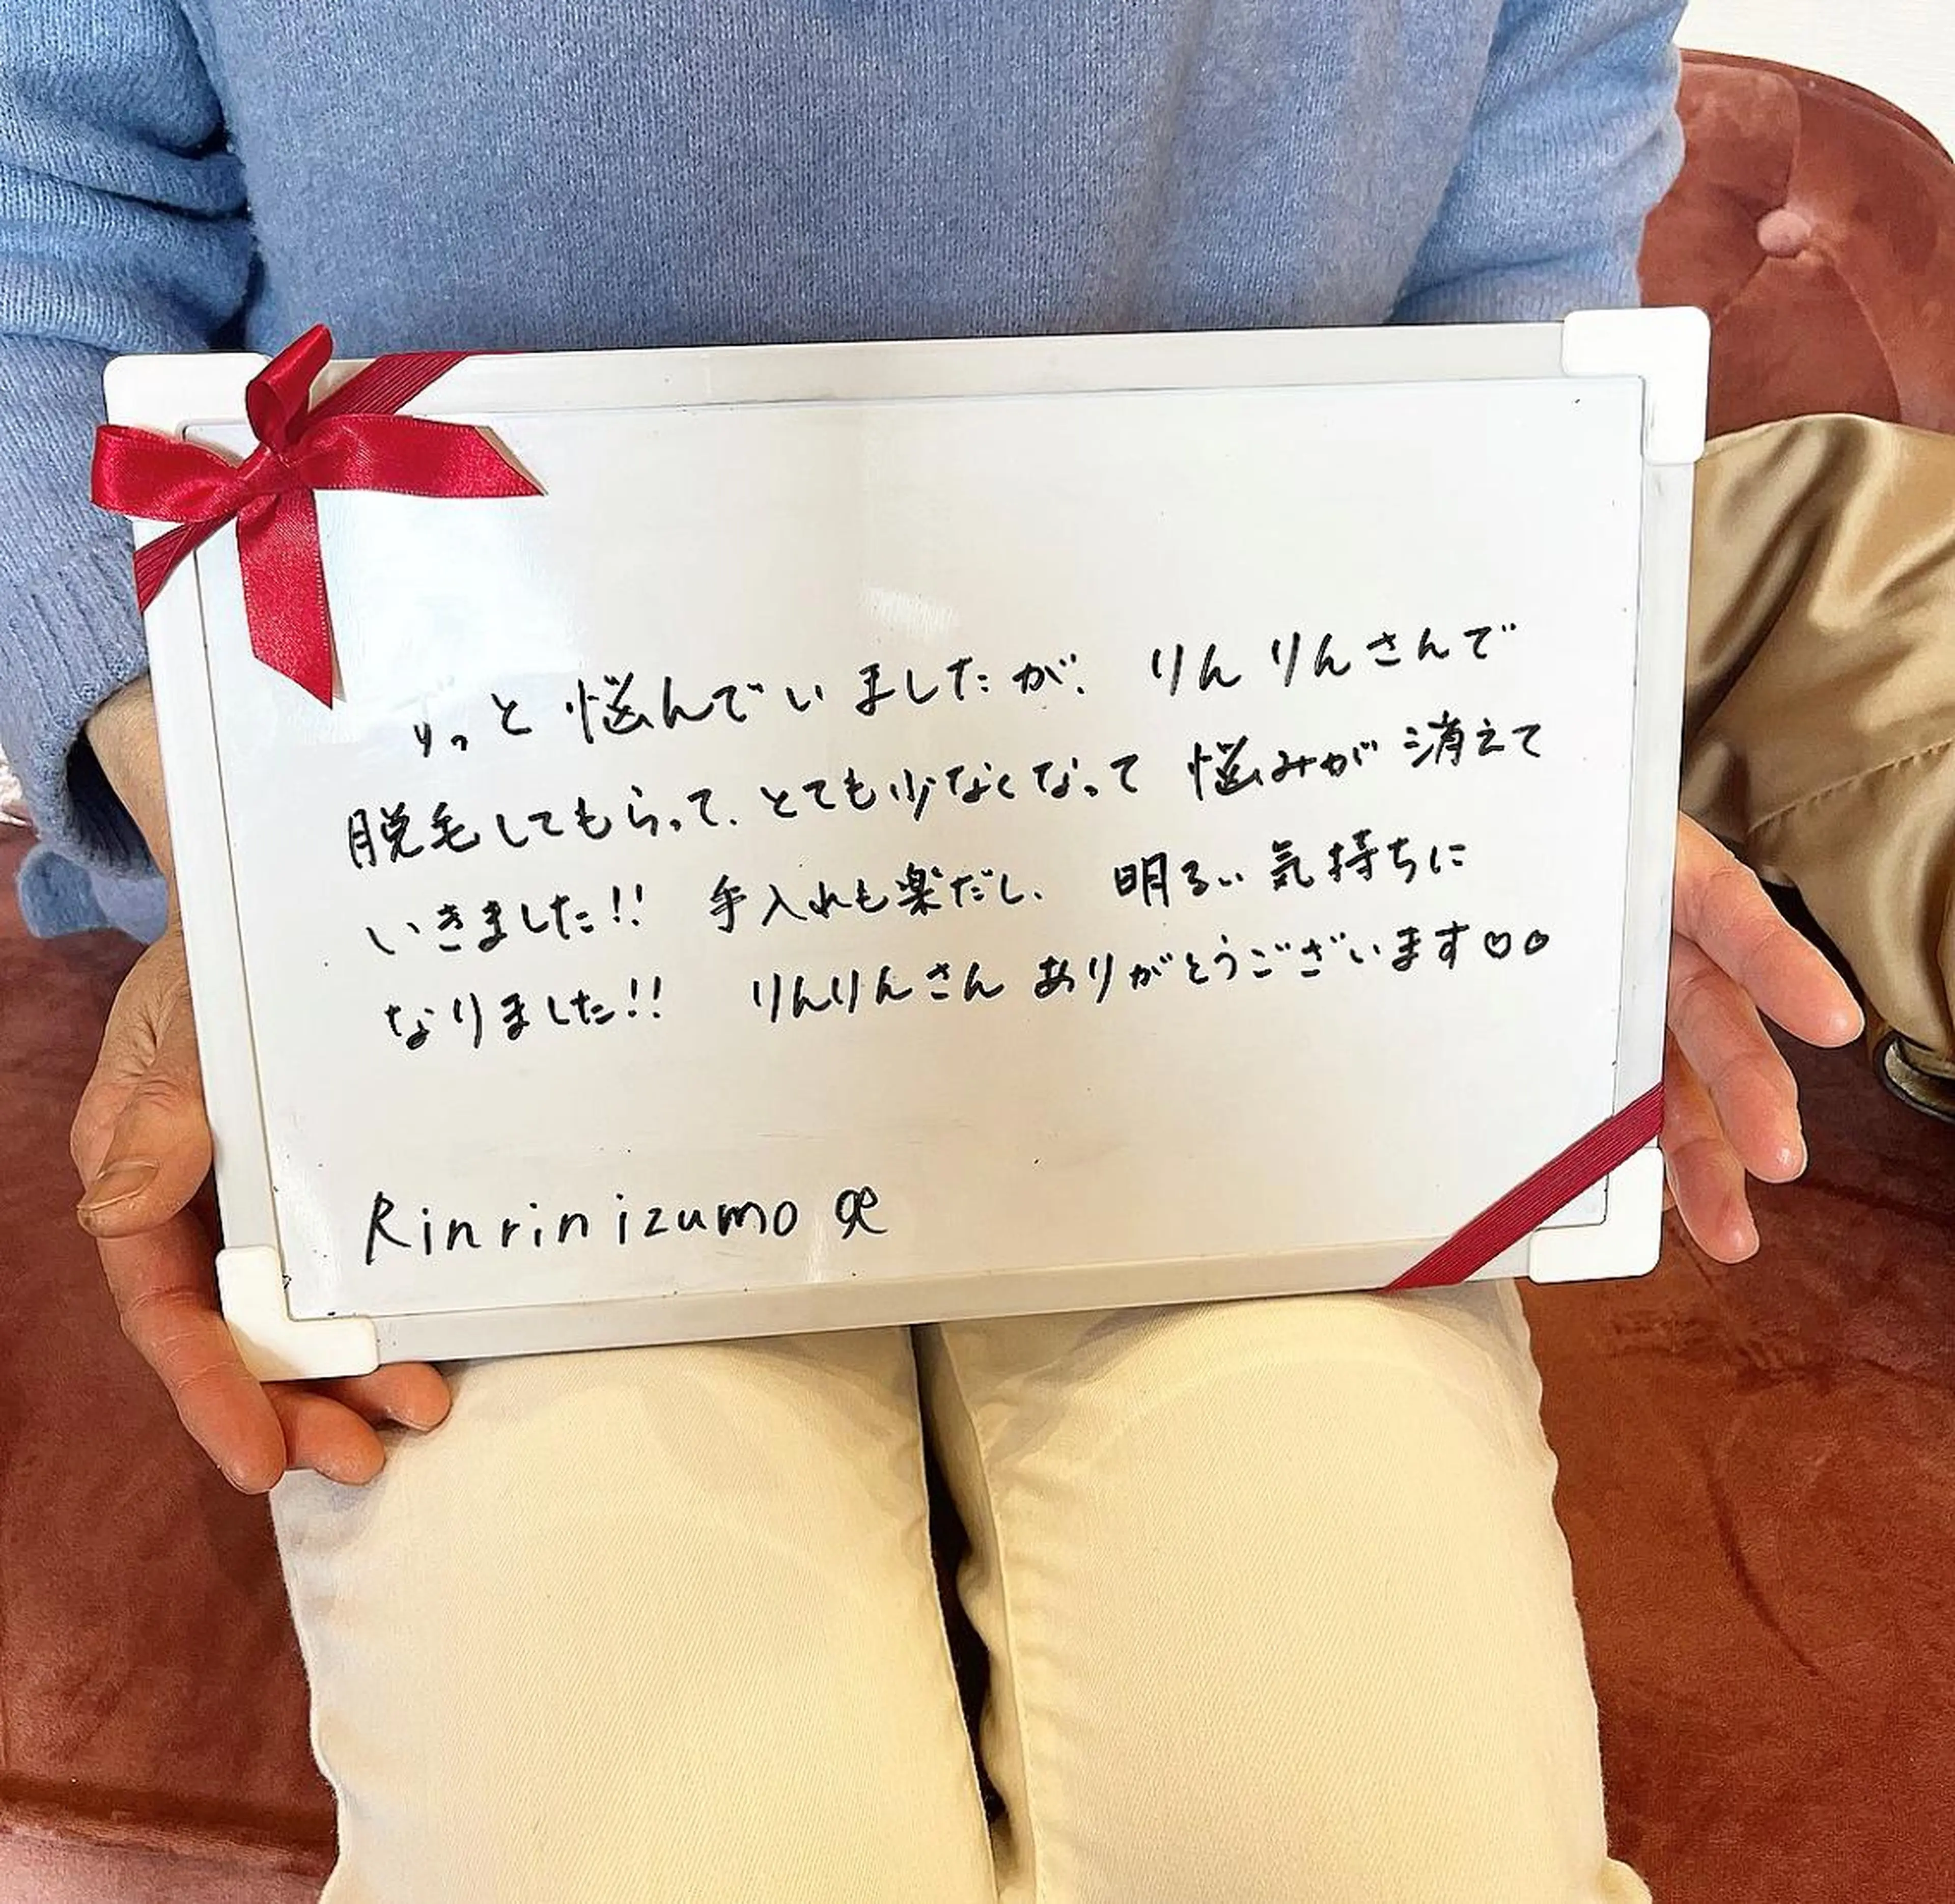 ずっと悩んでいましたが、りんりんさんで
脱毛してもらって、とても少なくなって悩みが消えて
いきました!! 手入れも楽だし、明るい気持ちに
なりました!! りんりんさんありがとうございます♡♡
Rinrin izumo